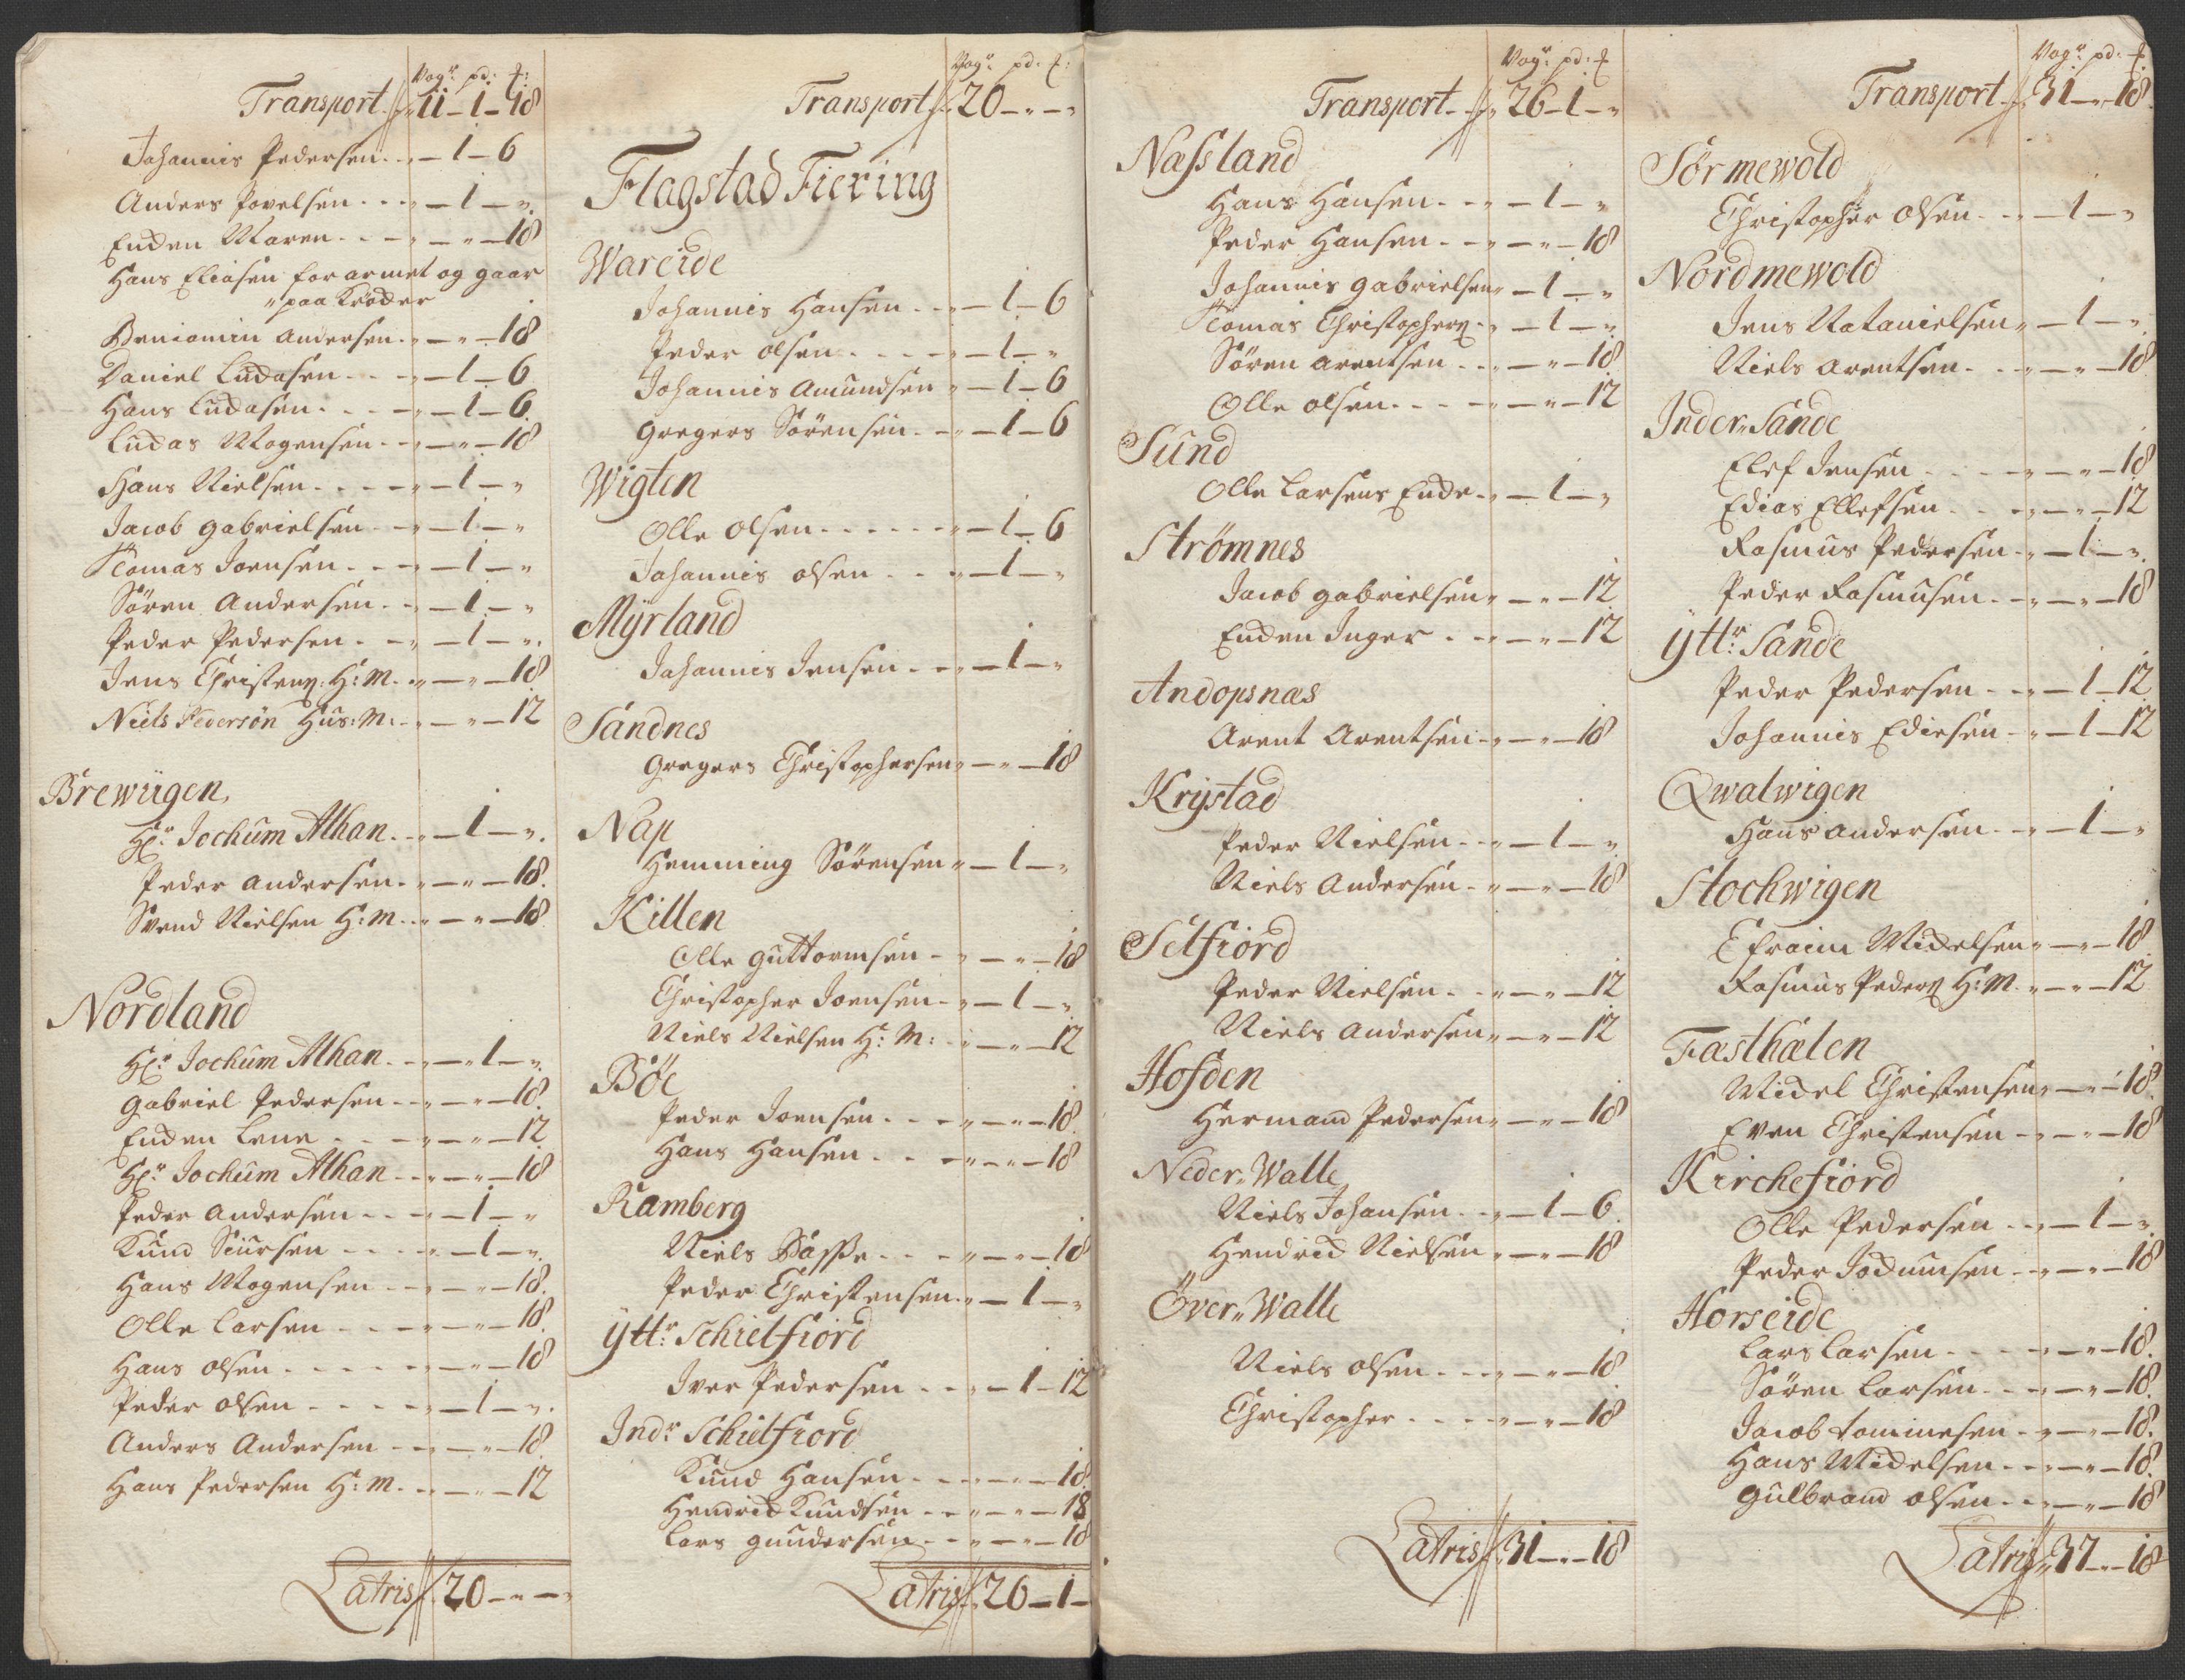 Vog: pd: ℔:
Transport 11 – 1 – 18
Johannis Pedersen – 1 – 6
Anders Povelsen – 1 –
Enchen Maren – 18
Hans Eliasen forarmet og gaar
paa Kröcher
Beniamin Andersen – 18
Daniel Ludasen – 1 – 6
Hans Ludasen – 1 – 6
Ludas Mogensen – 18
Hans Nielsen – 1 –
Jacob Gabrielsen – 1 –
Tomas Joensen – 1 –
Sören Andersen – 1 –
Peder Pedersen – 1 –
Jens Christens: H: M. – 18
Niels Pedersön Hus: M: – 12
Brewiigen
Hr: Jochum Alhan – 1 –
Peder Andersen – 18
Svend Nielsen H: M. – 18
Nordland
Hr: Jochum Alhan – 1 –
Gabriel Pedersen – 18
Enchen Lene – 12
Hr: Jochum Alhan – 18
Peder Andersen – 1 –
Knud Siursen – 1 –
Hans Mogensen – 18
Olle Larsen – 18
Hans Olsen – 18
Peder Olsen – 1 –
Anders Andersen – 18
Hans Pedersen H: M. – 12
Latris 20 – – –
Vog: pd: ℔:
Transport 20 – – –
Flagstad Fiering
Wareide
Johannis Hansen – 1 – 6
Peder Olsen – 1 –
Johannis Amundsen – 1 – 6
Gregers Sörensen – 1 – 6
Wigten
Olle Olsen – 1 – 6
Johannis Olsen – 1 –
Myrland
Johannis Jensen – 1 –
Sandnes
Gregers Christophersen – 18
Nap
Hemming Sörensen – 1 –
Killen
Olle Guttormsen – 18
Christopher Joensen – 1 –
Niels Nielsen H: M: – 12
Böe
Peder Joensen – 18
Hans Hansen – 18
Ramberg
Niels Basse – 18
Peder Christensen – 1 –
Ytt: Schielfiord
Iver Pedersen – 1 – 12
Indr Schielfiord
Knud Hansen – 18
Hendrich Knudsen – 18
Lars Gundersen – 18
Latris 26 – 1 –
Vog: pd: ℔
Transport 26 – 1 –
Nassland
Hans Hansen – 1 –
Peder Hansen – 18
Johannis Gabrielsen – 1 –
Tomas Christophers: – 1 –
Sören Arentsen – 18
Olle Olsen – 12
Sund
Olle Larsens Enche – 1 –
Strömnes
Jacob Gabrielsen – 12
Enchen Inger – 12
Andopsnæs
Arent Arentsen – 18
Krystad
Peder Nielsen – 1 –
Niels Andersen – 18
Selfiord
Peder Nielsen – 12
Niels Andersen – 12
Hofden
Hermand Pedersen – 18
Neder Walle
Niels Johansen – 1 – 6
Hendrich Nielsen – 18
Över Walle
Niels Olsen – 18
Christopher – 18
Latris 31 – – 18
Vog: pd: ℔
Transport 31 – – 18
Sörmewold
Christopher Olsen – 1 –
Nordmewold
Jens Natanielsen – 1 –
Niels Arentsen – 18
Inder Sande
Elef Jensen – 18
Edias Ellefsen – 12
Rasmus Pedersen – 1 –
Peder Rasmusen – 18
Yttr: Sande
Peder Pedersen – 1 – 12
Johannis Ediesen – 1 – 12
Qwalwigen
Hans Andersen – 1 –
Stochwigen
Efraim Michelsen – 18
Rasmus Peders: H: M. – 12
Fasthælen
Michel Christensen – 18
Even Christensen – 18
Kirchefiord
Olle Pedersen – 1 –
Peder Jochumsen – 18
Horseide
Lars Larsen – 18
Sören Larsen – 18
Jacob Tommesen – 18
Hans Michelsen – 18
Gulbrand Olsen – 18
Latris 37 – – 18